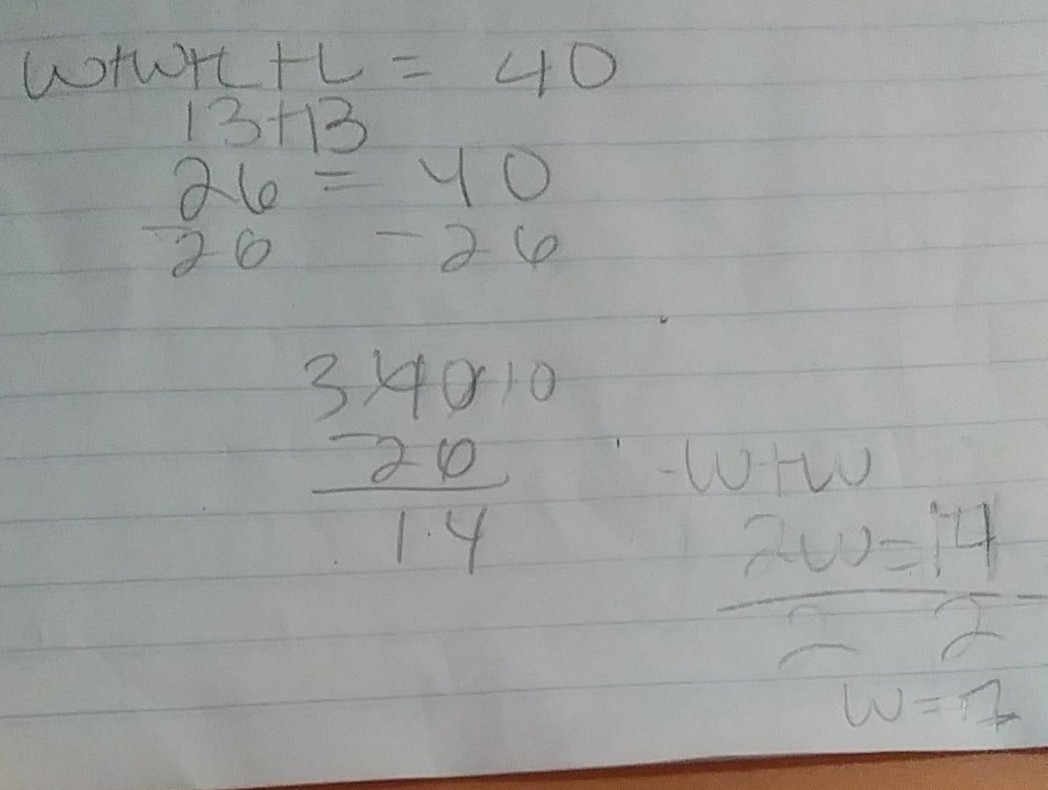 W+W+L+L = 40
13+13
26 = 40
-26 -26
3 40 10
-26
14
-W+W
2W=14
2 2
W=7